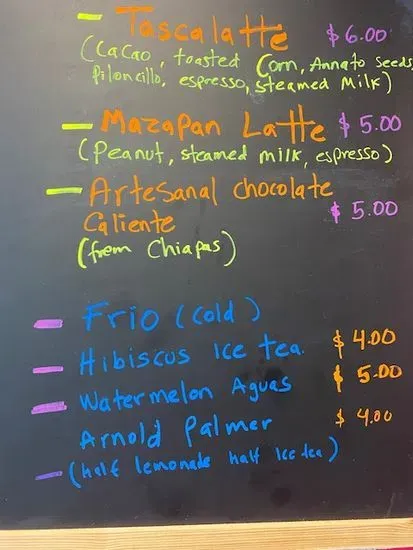 - Tascalatte $6.00
(Cacao, toasted Corn, Annato seeds,
Piloncillo, espresso, steamed Milk)
- Mazapan Latte $5.00
(Peanut, steamed milk, espresso)
- Artesanal chocolate
Caliente $5.00
(from Chiapas)
- Frio (cold)
- Hibiscus Ice tea. $4.00
- Watermelon Aguas $5.00
Arnold Palmer $4.00
- (half lemonade half Ice tea)